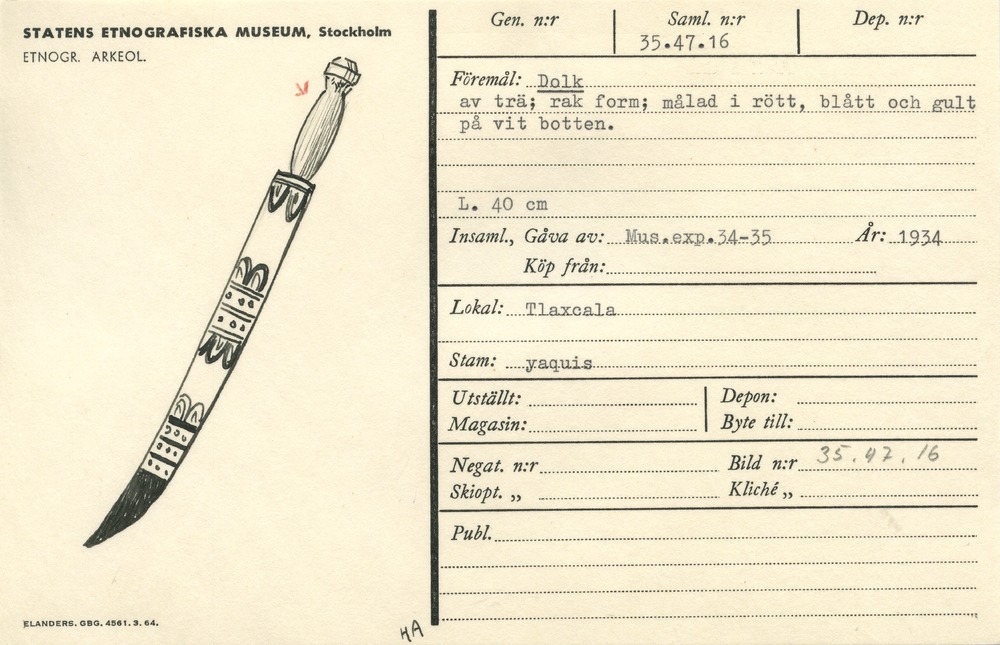 STATENS ETNOGRAFISKA MUSEUM, Stockholm
ETNOGR. ARKEOL.
Gen. n:r
Saml. n:r
35.47.16
Dep. n:r
Föremål: Dolk
av trä; rak form; målad i rött, blått och gult
på vit botten.
L. 40 cm
Insaml., Gåva av: Mus.exp.34-35 År: 1934
Köp från:
Lokal: Tlaxcala
Stam: yaquis
Utställt: Depon:
Magasin: Byte till:
Negat. n:r Bild n:r 35.47.16
Skiopt. „ Kliché „
Publ.
ELANDERS. GBG. 4561. 3. 64.
HA